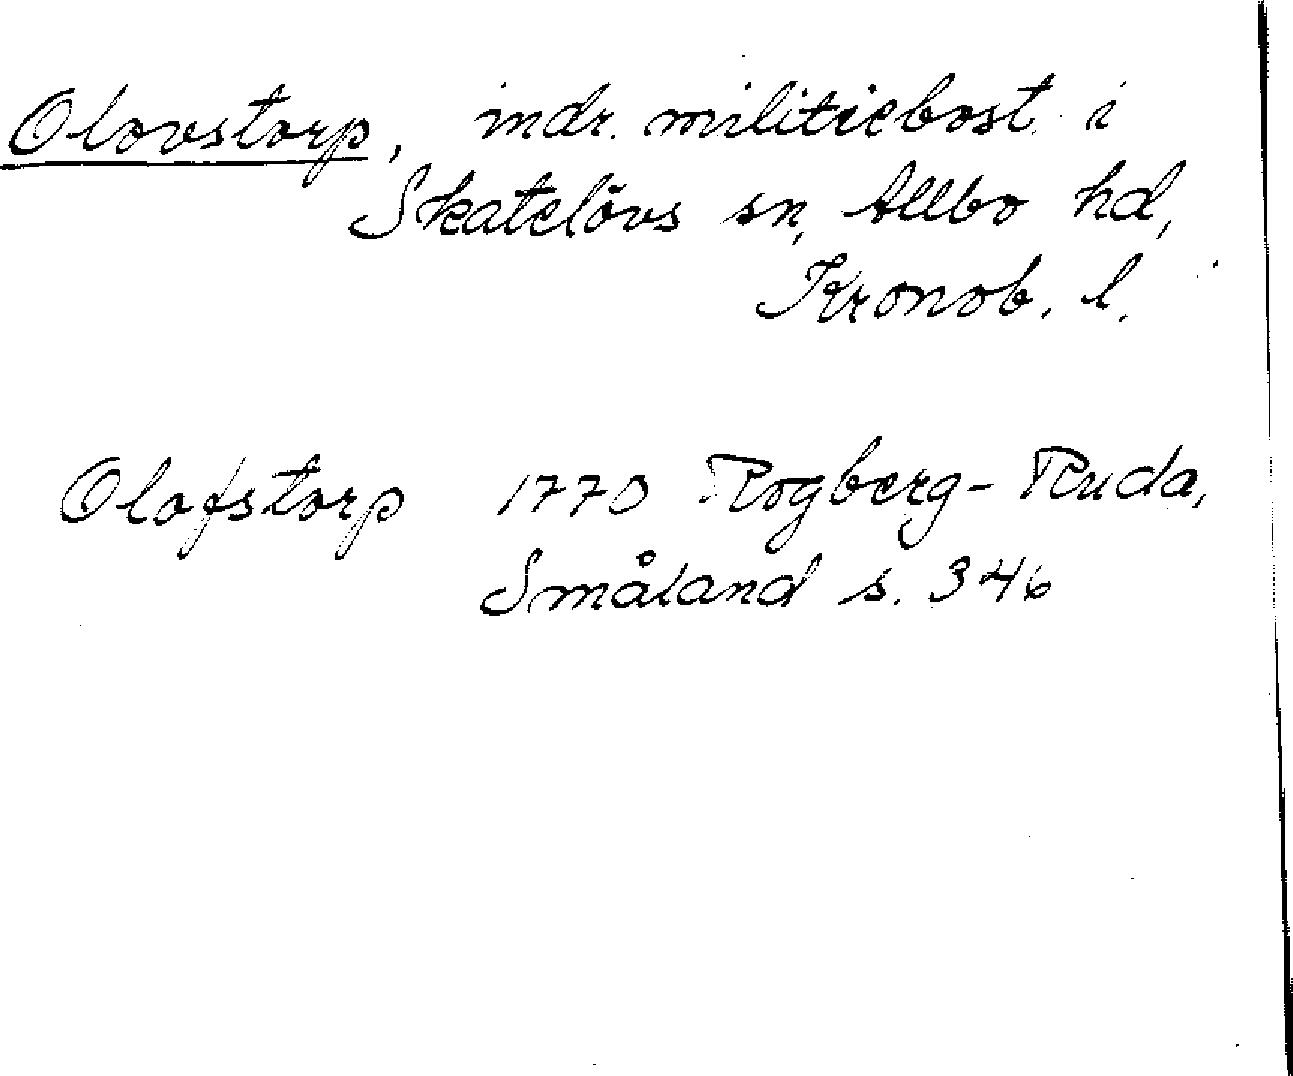 Olovstorp, indr. militiebost. i
Skatelövs sn, Allbo hd,
Kronob. l.
Olofstorp 1770 Rogberg-Ruda,
Småland s. 346